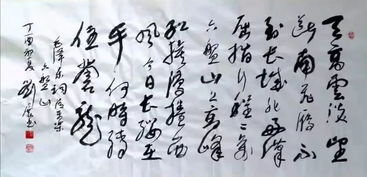 天高雲淡望
断南飛雁不
到长城非好漢
屈指行程二萬
六盤山上高峰
红旗漫捲西
風今日长缨在
手何时缚
住蒼龍
毛泽东词清平乐
六盘山
丁酉初夏 劉